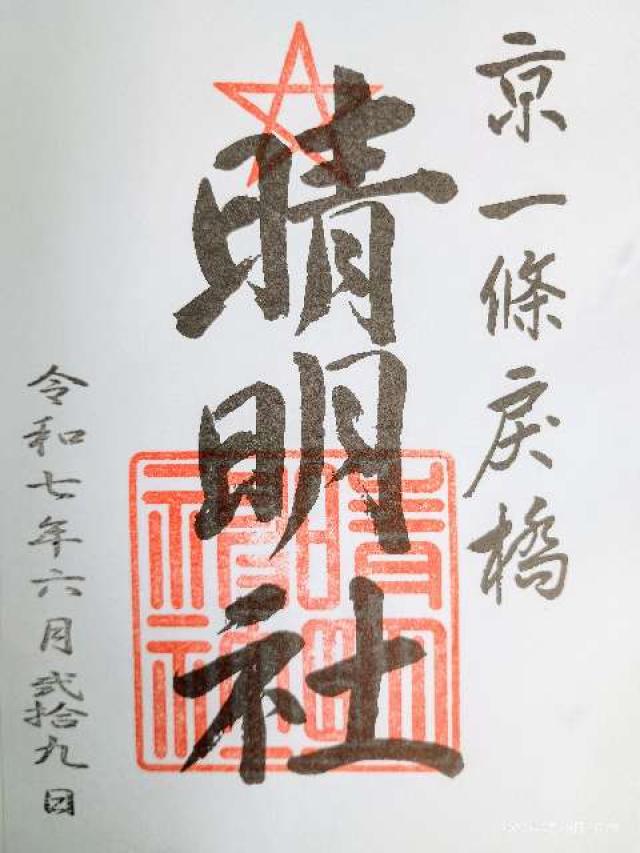 京一條戻橋
晴明社
令和七年六月弐拾九日